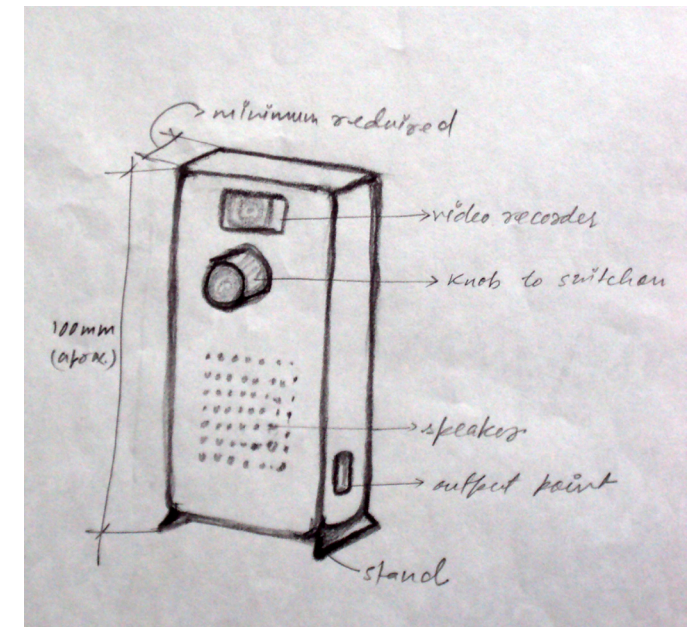 minimum required
video recorder
knob to switchon
100mm
(aprox.)
speaker
output point
stand